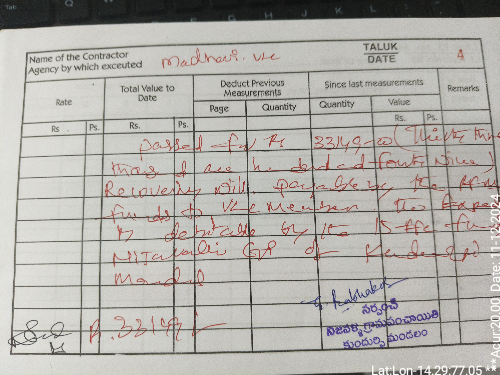 Name of the Contractor
Agency by which executed
Madhavi. vec
TALUK
DATE
4
Rate
Total Value to
Date
Deduct Previous
Measurements
Since last measurements
Remarks
Page
Quantity
Quantity
Value
Rs.
Ps.
Rs.
Ps.
Rs.
Ps.
passed for Rs 33149-00 (Thirty three
thousand one hundred forty Nine)
Recovery nill. payable by the
funds to vec member the
is debitable by the 15 ffc
GP of
Mandal
సర్పంచి
గ్రామపంచాయితి
కుందుర్పి మండలం
Rs. 33149/-
Lat:Lon-14.29:77.05